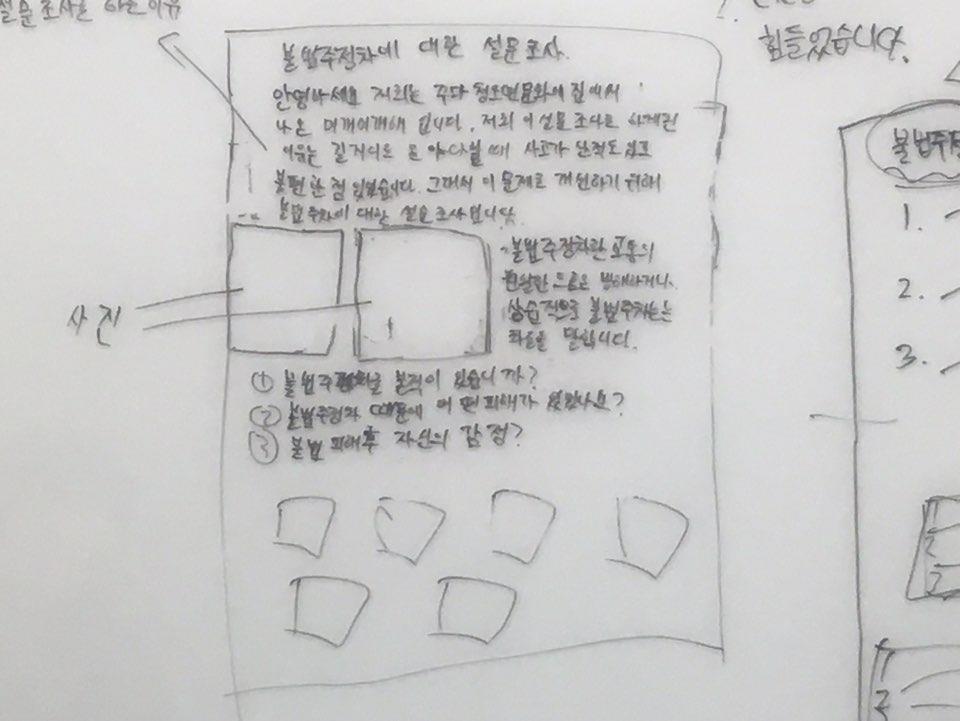 설문 조사를 하는 이유
힘들었습니다.
불법주정차에 대한 설문조사.
안녕하세요 저희는 청소년문화의 집에서
나온 입니다. 저희 이 설문조사를
이유는 때 사고가 난적도 있고
불편한 점 있었습니다. 그래서 이 문제를 개선하기 위해
불법주차에 대한 설문조사입니다.
사진
불법주정차란 교통의
방해하거나
상습적으로 불법주차는
말합니다.
① 불법 본적이 있습니까?
② 불법주정차 때문에 어떤 피해가 있었나요?
③ 불법 피해후 자신의 감정?
불법주정
1.
2.
3.
1
2
3
1
2